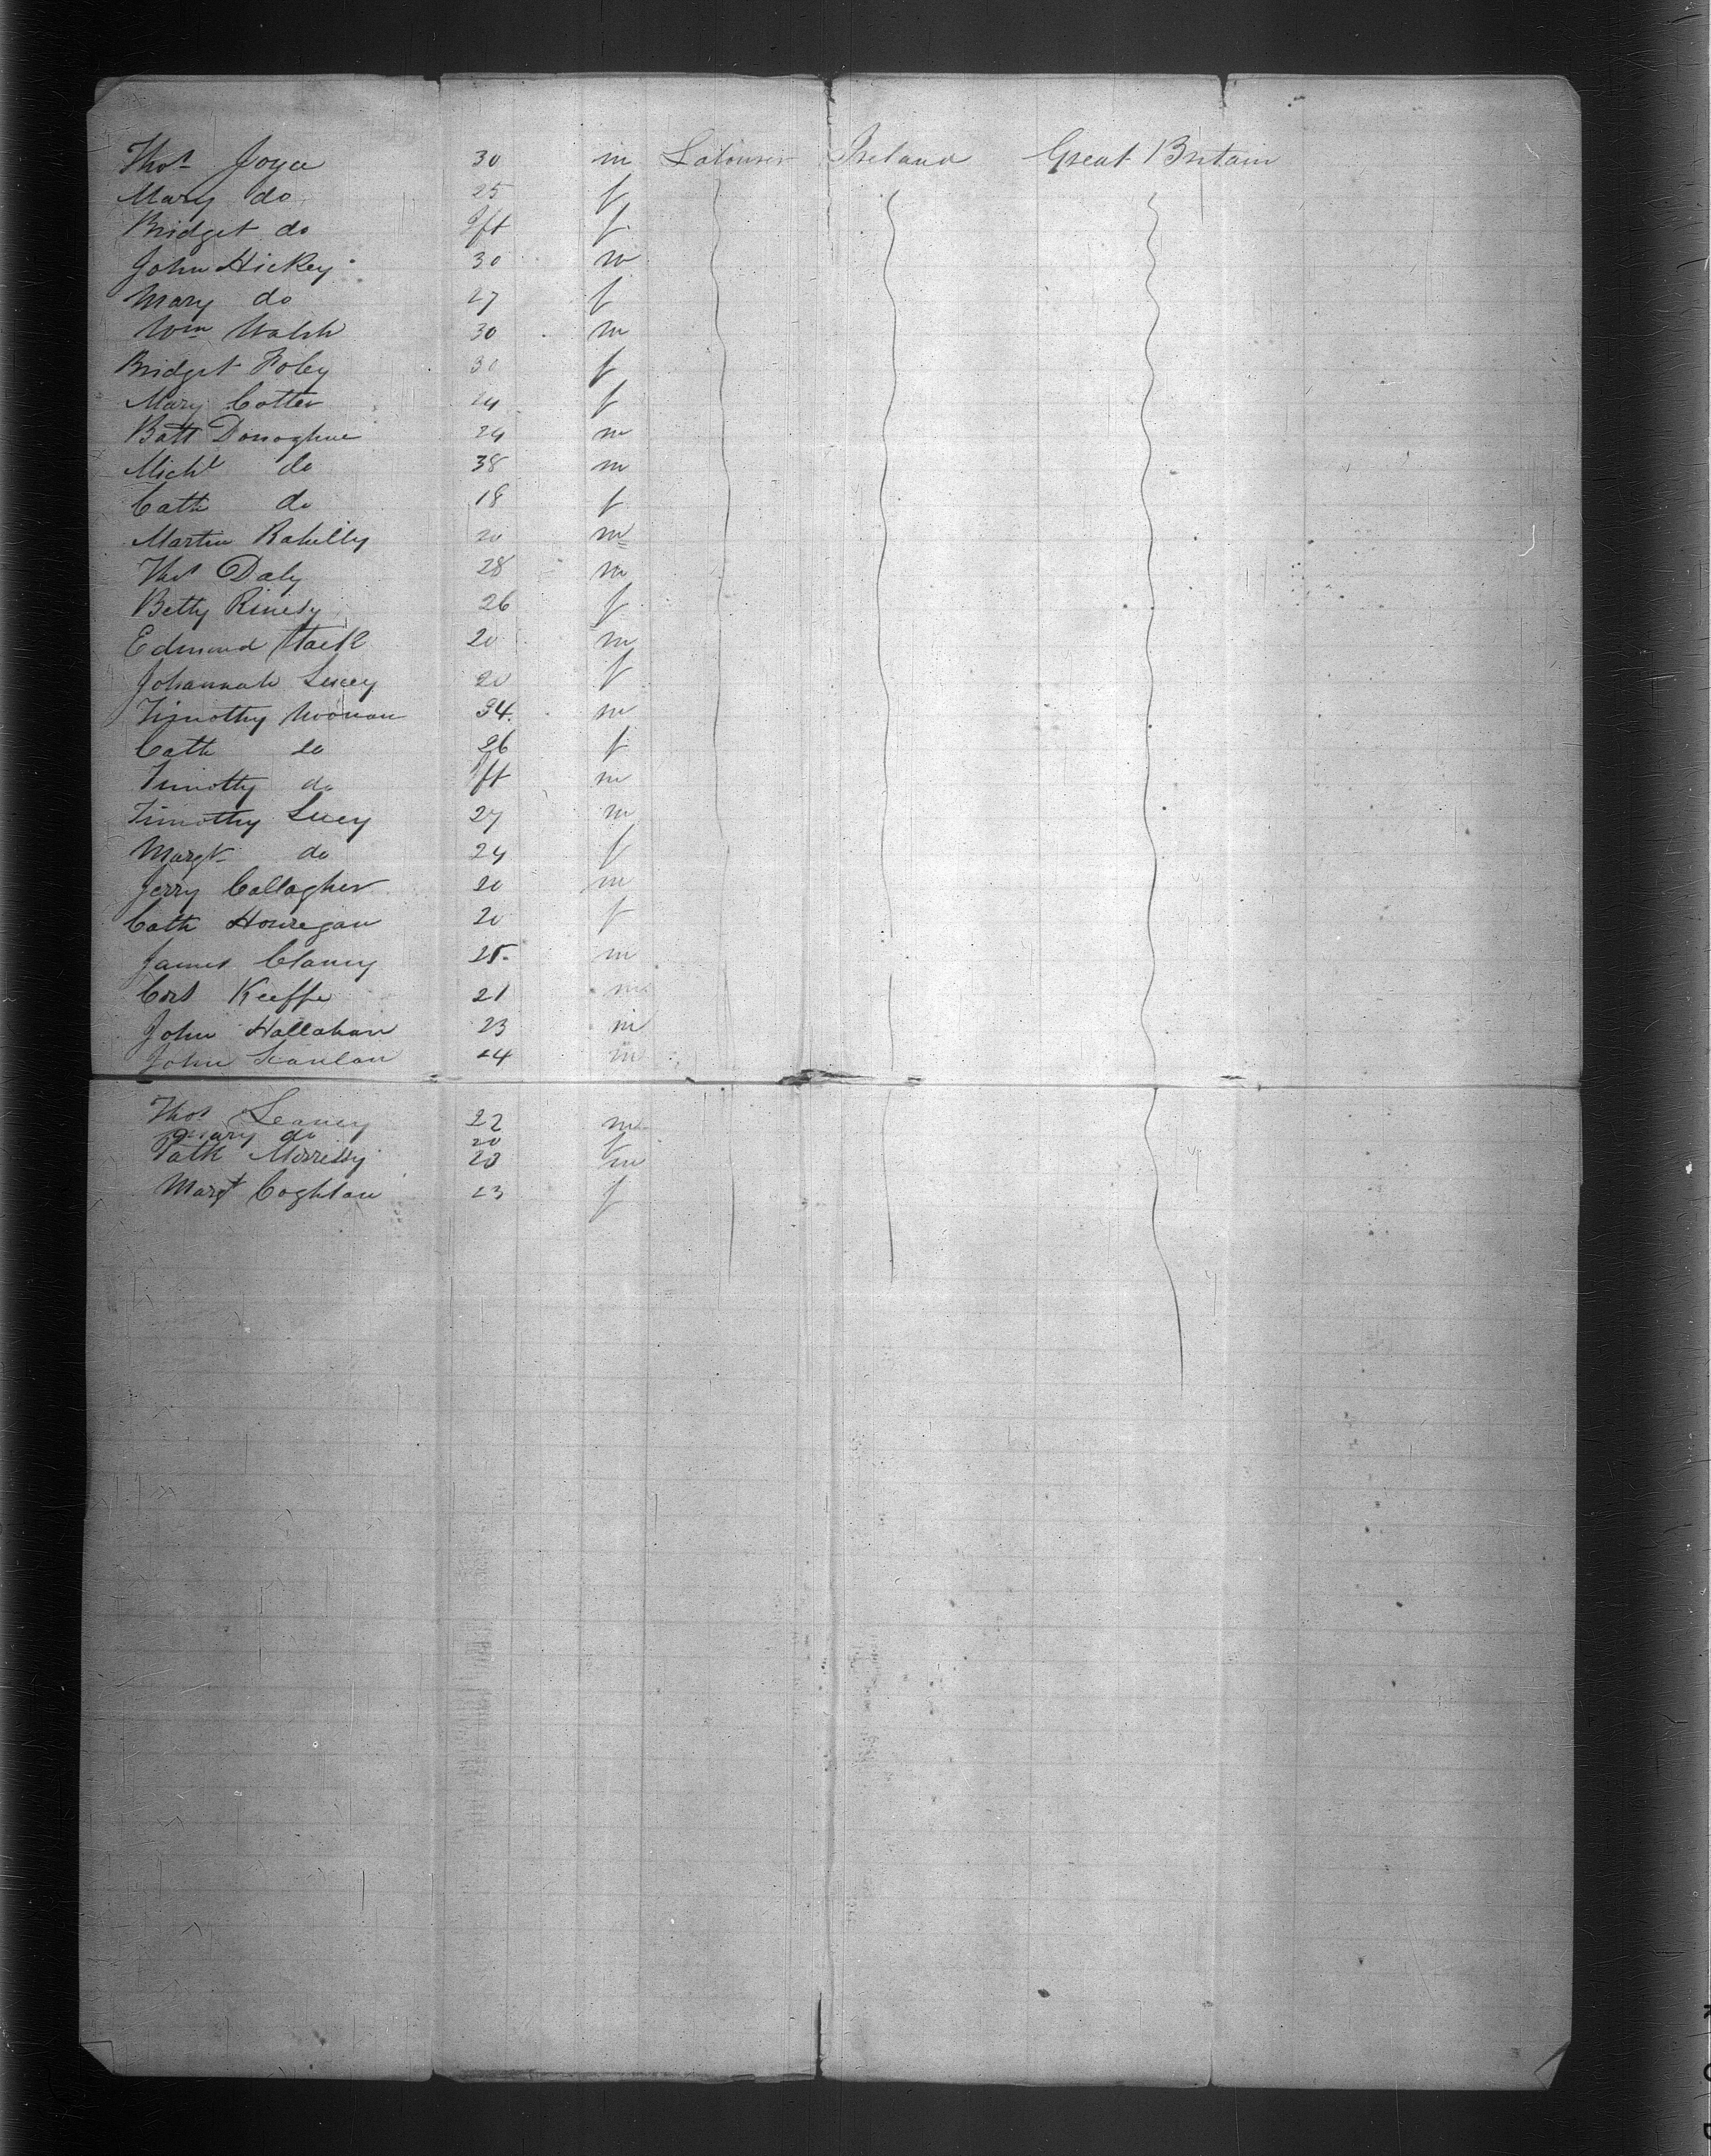 Thos Joyce 30 m Labourer Ireland Great Britain
Mary do 25 f
Bridget do Ift f
John Hickey 30 m
Mary do 27 f
Wm Walsh 30 m
Bridget Foley 30 f
Mary Cotter 24 f
Batt Donoghue 24 m
Michl do 38 m
Cath do 18 f
Martin Rahilly 20 m
Thos Daly 28 m
Betty 26 f
Edmund Stack 20 m
Johannah Lucey 20 f
Timothy Noonan 34 m
Cath do 26 f
Timothy do Ift m
Timothy Lucy 27 m
Margt do 24 f
Jerry Callagher 20 m
Cath Houregan 20 f
James Clancy 25 m
Corl Keeffe 21 m
John Hallahan 23 m
John Scanlan 24 m
Thos 22 m
Mary do 20 f
Patk Morrissy 20 m
Margt Coghlan 23 f